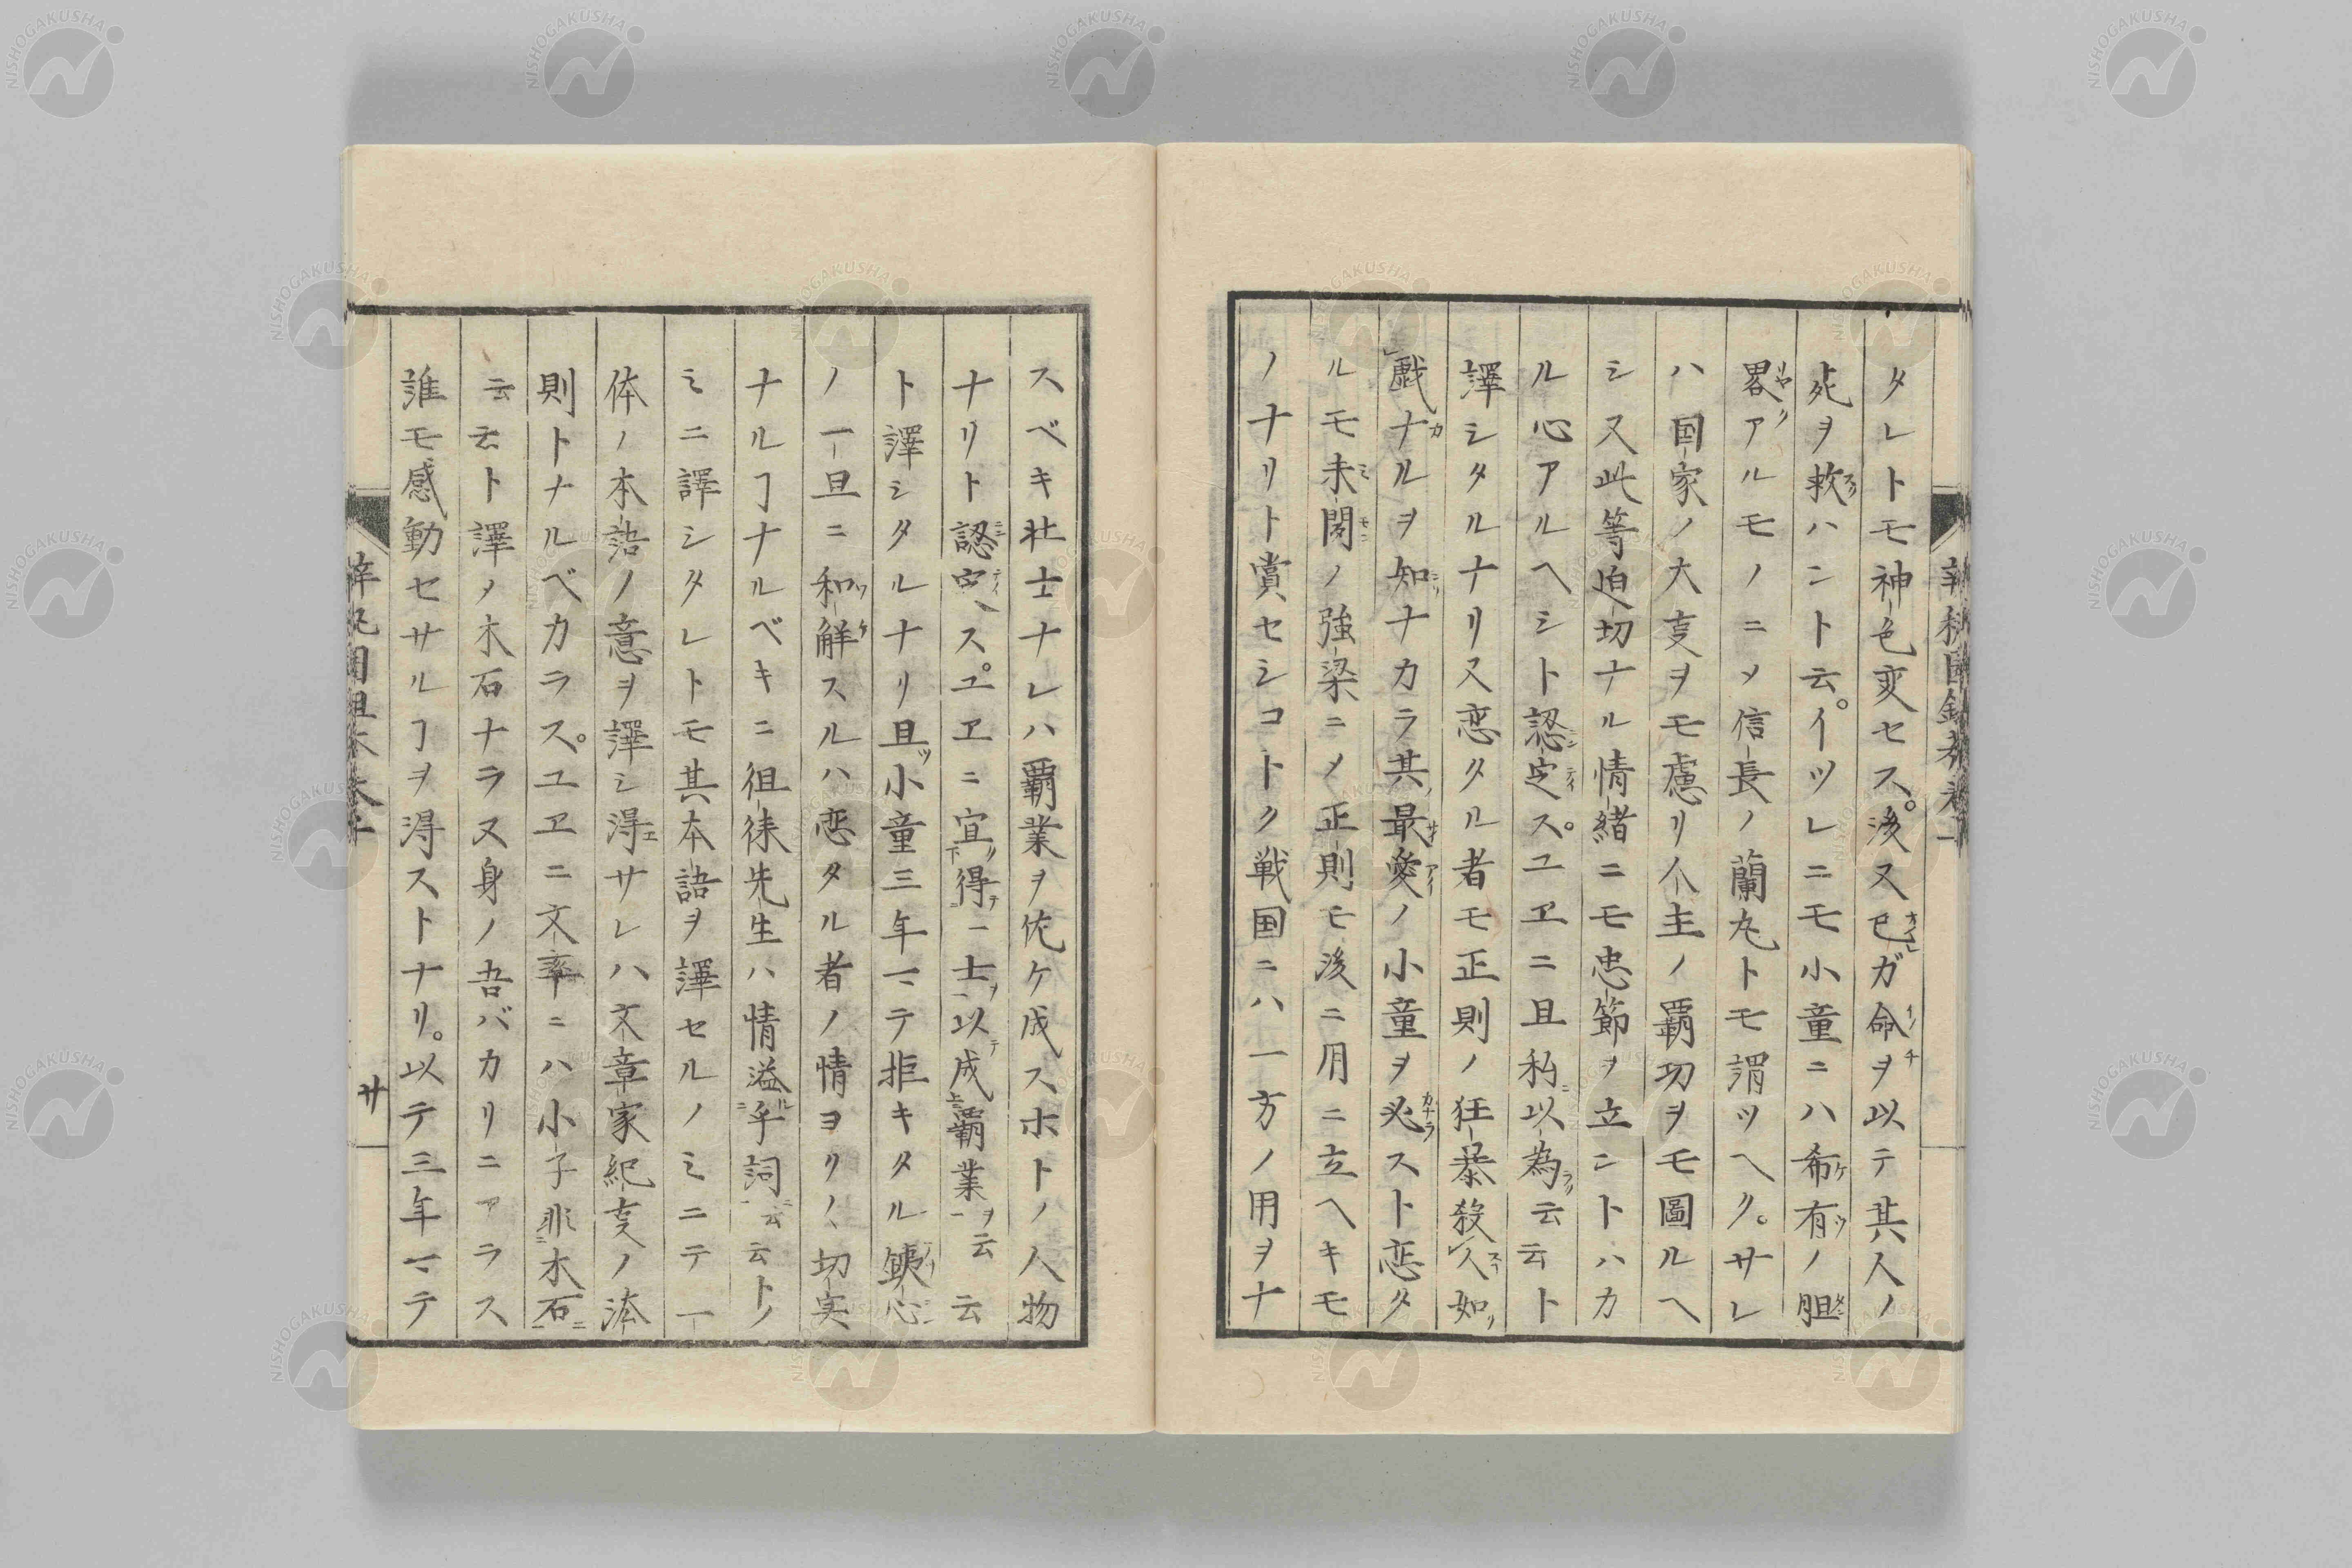 タレトモ神色変セス。後又已ガ命ヲ以テ其人ノ
死ヲ救ハント云。イツレニモ小童ニハ希有ノ胆
畧アルモノニメ信長ノ蘭丸トモ謂ツヘク。サレ
ハ国家ノ大事ヲモ慮リ人主ノ覇功ヲモ圖ルヘ
シ又此等迫切ナル情緒ニモ忠節ヲ立ントハカ
ル心アルヘシト認定ス。ユヱニ且私以為云云ト
譯シタルナリ又恋タル者モ正則ノ狂暴殺人如
戯ナルヲ知ナカラ其最愛ノ小童ヲ必スト恋タ
ルモ未聞ノ強梁ニメ正則モ後ニ用ニ立ヘキモ
ノナリト賞セシコトク戦国ニハ一方ノ用ヲナ
スベキ壮士ナレハ覇業ヲ佐ケ成スホトノ人物
ナリト認定スユヱニ宜得一士以成覇業云云
ト譯シタルナリ且小童三年一テ拒キタル鉄心
ノ一旦ニ和解スルハ恋タル者ノ情ヨリノ切実
ナルヿナルベキニ徂徠先生ハ情溢乎詞云云トノ
ミニ譯シタレトモ其本語ヲ譯セルノミニテ一
体ノ本語ノ意ヲ譯シ得サレハ文章家紀事ノ法
則トナルベカラス。ユヱニ文率ニハ小子非木石
云云ト譯メ木石ナラヌ身ノ吾バカリニアラス
誰モ感動セサルヿヲ得ストナリ。以テ三年一テ
サ
NISHOGAKUSHA